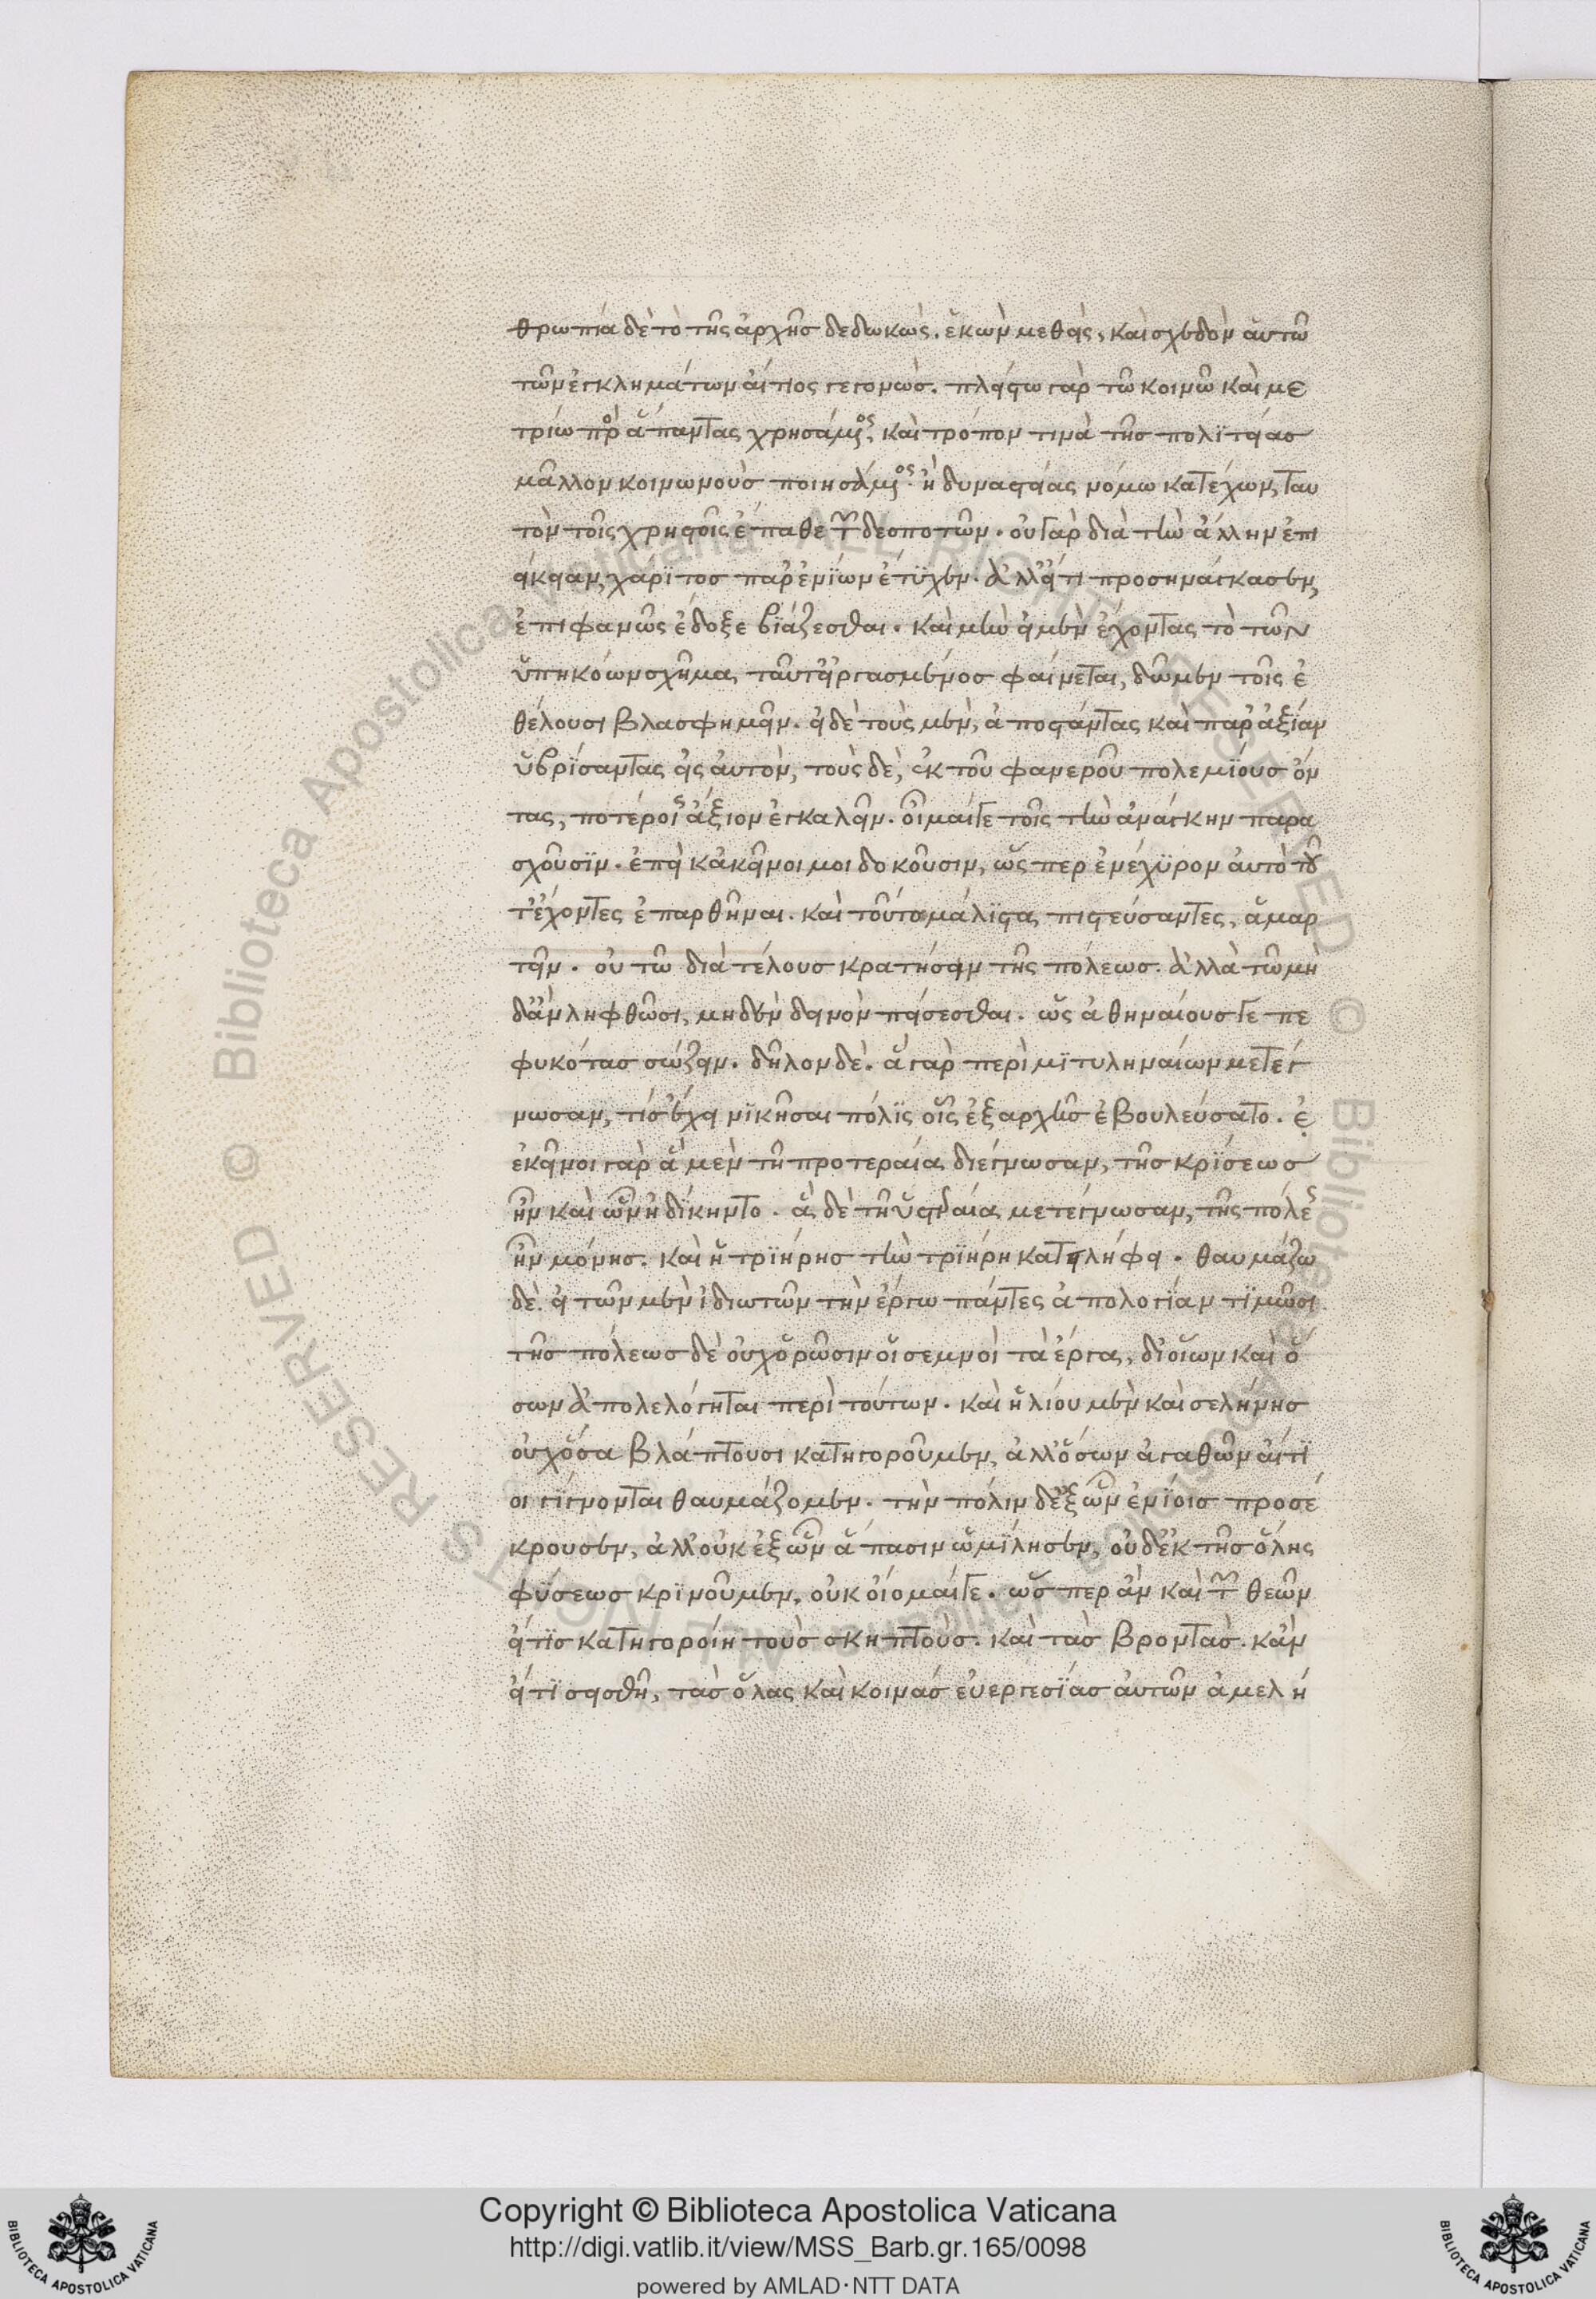 θρωπία δὲ τὸ τῆς ἀρχῆς δεδωκὼς. ἑκὼν μεθεὶς, καὶ σχεδὸν αὑτῶ
τῶν ἐγκλημάτων αἴτιος γεγονὼς. πλείστω γὰρ τῶ κοινῶ καὶ με
τρίω πρὸς ἅπαντας χρησάμενος, καὶ τρόπον τινὰ τῆς πολϊτείας
μᾶλλον κοινωνοὺς ποιησάμενος. ἢ δυναστείας νόμω κατέχων, ταυ
τὸν τοῖς χρηστοῖς ἔπαθε τῶν δεσποτῶν. οὐ γὰρ διὰ τὴν ἄλλην ἐπι
είκειαν, χάρϊτος παρ' ἐνΐων ἔτϋχεν. ἀλλ' εἴ τι προσηνάγκασεν,
ἐπιφανῶς ἔδοξε βϊάζεσθαι. καὶ μὴν εἰ μὲν ἔχοντας τὸ τῶν
ὑπηκόων σχῆμα, ταῦτ' εἰργασμένος φαίνεται, δῶμεν τοῖς ἐ
θέλουσι βλασφημεῖν. εἰ δὲ τοὺς μὲν, ἀποστάντας καὶ παρ' ἀξίαν
ὑβρΐσαντας εἰς αὐτὸν, τοὺς δὲ, ἐκ τοῦ φανεροῦ πολεμΐους ὄν
τας, ποτέροις ἄξιον ἐγκαλεῖν. οἶμαί γε τοῖς τὴν ἀνάγκην παρα
σχοῦσϊν. ἐπεὶ κἀκεῖνοι μοι δοκοῦσιν, ὥς περ ἐνέχϋρον αὐτὸ τοῦ
τ' ἔχοντες ἐπαρθῆναι. καὶ τοῦτο μάλϊστα, πιστεύσαντες, ἁμαρ
τεῖν. οὐ τῶ διὰ τέλους κρατήσειν τῆς πόλεως. ἀλλὰ τῶ μὴ
δ' ἂν ληφθῶσι, μηδὲν δεινὸν πείσεσθαι. ὡς ἀθηναίους γε πε
φυκότας σώζειν. δῆλον δὲ. ἃ γὰρ περὶ μϊτυληναίων μετέγ
νωσαν, τίς ἔχει νϊκῆσαι πόλϊς οἷς ἐξαρχῆς ἐβουλεύσατο. ἐ
ἐκεῖνοι γὰρ ἃ μὲν τῆ προτεραία διέγνωσαν, τῆς κρΐσεως
ἦν καὶ ὧν ἠδΐκηντο. ἃ δὲ τῆ ὑστεραία μετέγνωσαν, τῆς πόλεως
ἦν μόνης. καὶ ἡ τρϊήρης τὴν τρϊήρη κατειλήφει. θαυμάζω
δὲ. εἰ τῶν μὲν ἰδιωτῶν τὴν ἔργω πάντες ἀπολογΐαν τϊμῶσι
τῆς πόλεως δὲ οὐχ ὁρῶσιν οἱ σεμνοὶ τὰ ἔργα, δι' οἵων καὶ ὅ
σων ἀπολελόγηται περὶ τούτων. καὶ ἡλίου μὲν καὶ σελήνης
οὐχ ὅσα βλάπτουσι κατηγοροῦμεν, ἀλλ' ὅσων ἀγαθῶν αἴτϊ
οι γΐγνονται θαυμάζομεν. τὴν πόλιν δ' ἐξ ὧν ἐνΐοις προσέ
κρουσεν, ἀλλ' οὐκ ἐξ ὧν ἅπασιν ὡμΐλησεν, οὐδ' ἐκ τῆς ὅλης
φΰσεως κρϊνοῦμεν, οὐκ οἴομαί γε. ὥς περ ἂν καὶ τῶν θεῶν
εἴ τϊς κατηγοροίη τοὺς σκηπτοὺς. καὶ τὰς βροντὰς. κἂν
εἴ τϊ σεισθῆ, τὰς ὅλας καὶ κοινὰς εὐεργεσΐας αὐτῶν ἀμελή
Copyright © Biblioteca Apostolica Vaticana
http://digi.vatlib.it/view/MSS_Barb.gr.165/0098
powered by AMLAD·NTT DATA